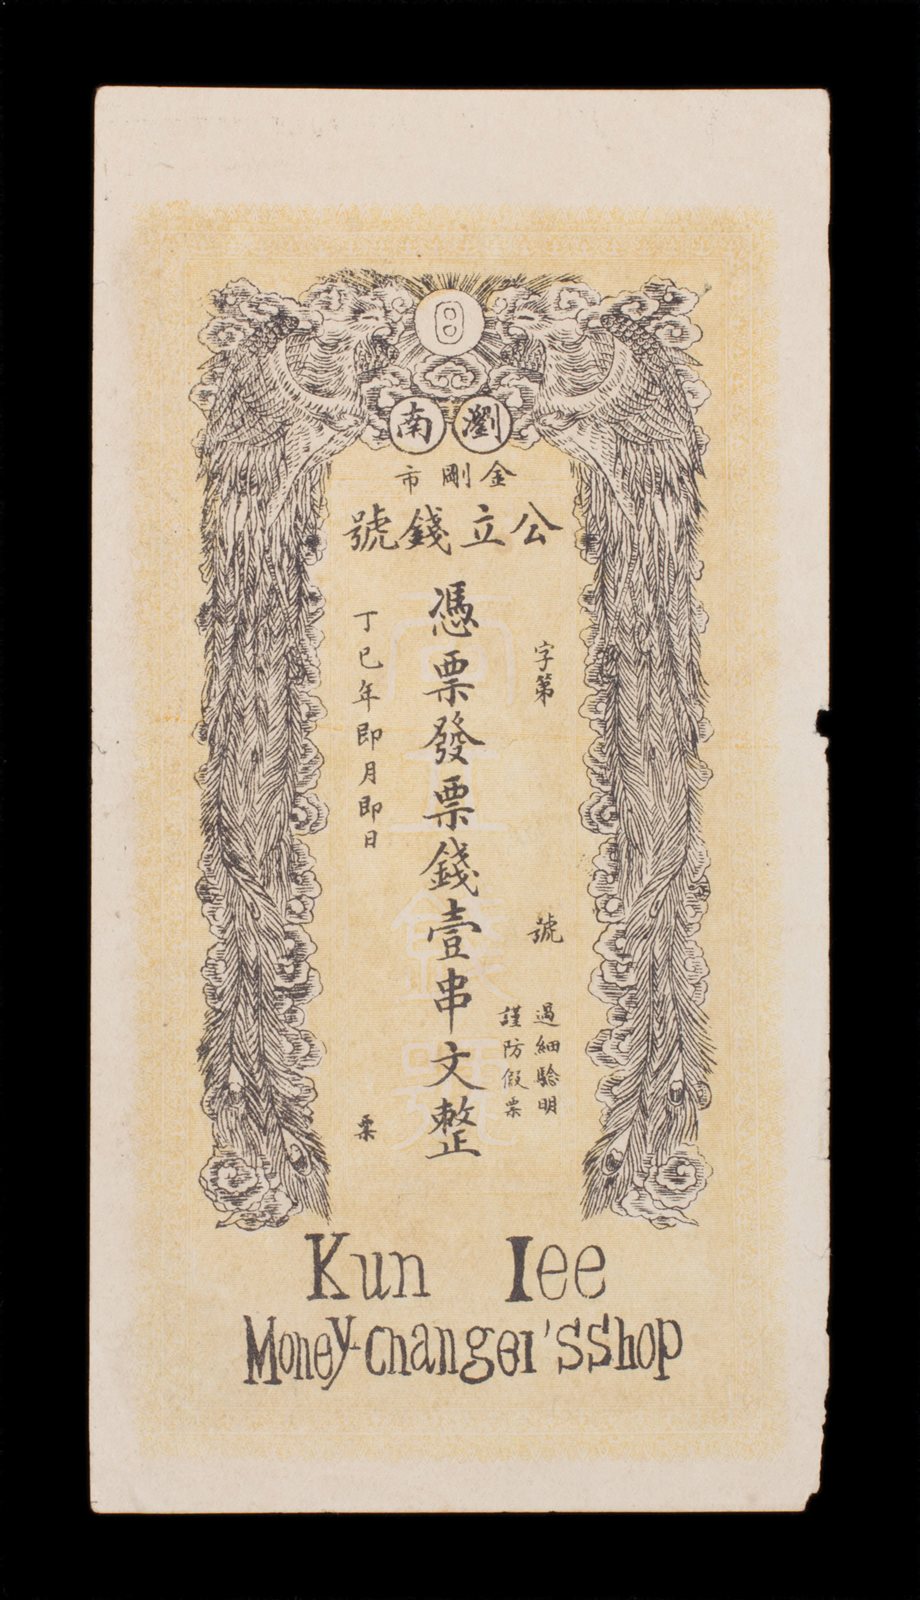 瀏南
金剛市
公立錢號
字第
號
過細驗明
謹防假票
憑票發票錢壹串文整
丁巳年即月即日
票
公立錢號
Kun Iee
Money-changei'sshop